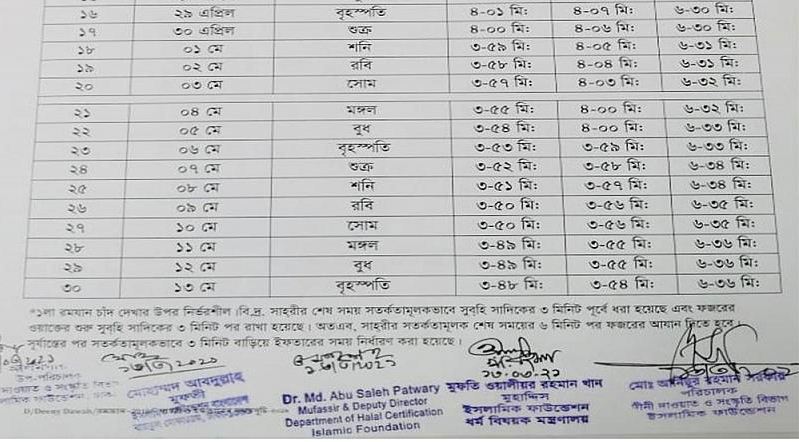 ১৬ ২৯ এপ্রিল বৃহস্পতি ৪-০১ মি: ৪-০৭ মি: ৬-৩০ মি:
১৭ ৩০ এপ্রিল শুক্র ৪-০০ মি: ৪-০৬ মি: ৬-৩০ মি:
১৮ ০১ মে শনি ৩-৫৯ মি: ৪-০৫ মি: ৬-৩১ মি:
১৯ ০২ মে রবি ৩-৫৮ মি: ৪-০৪ মি: ৬-৩১ মি:
২০ ০৩ মে সোম ৩-৫৭ মি: ৪-০৩ মি: ৬-৩২ মি:
২১ ০৪ মে মঙ্গল ৩-৫৫ মি: ৪-০০ মি: ৬-৩২ মি:
২২ ০৫ মে বুধ ৩-৫৪ মি: ৪-০০ মি: ৬-৩৩ মি:
২৩ ০৬ মে বৃহস্পতি ৩-৫৩ মি: ৩-৫৯ মি: ৬-৩৩ মি:
২৪ ০৭ মে শুক্র ৩-৫২ মি: ৩-৫৮ মি: ৬-৩৪ মি:
২৫ ০৮ মে শনি ৩-৫১ মি: ৩-৫৭ মি: ৬-৩৪ মি:
২৬ ০৯ মে রবি ৩-৫০ মি: ৩-৫৬ মি: ৬-৩৫ মি:
২৭ ১০ মে সোম ৩-৫০ মি: ৩-৫৬ মি: ৬-৩৫ মি:
২৮ ১১ মে মঙ্গল ৩-৪৯ মি: ৩-৫৫ মি: ৬-৩৬ মি:
২৯ ১২ মে বুধ ৩-৪৯ মি: ৩-৫৫ মি: ৬-৩৬ মি:
৩০ ১৩ মে বৃহস্পতি ৩-৪৮ মি: ৩-৫৪ মি: ৬-৩৬ মি:
*১লা রমযান চাঁদ দেখার উপর নির্ভরশীল।বি.দ্র. সাহরীর শেষ সময় সতর্কতামূলকভাবে সুবহি সাদিকের ৩ মিনিট পূর্বে ধরা হয়েছে এবং ফজরের
ওয়াক্তের শুরু সুবহি সাদিকের ৩ মিনিট পর রাখা হয়েছে। অতএব, সাহরীর সতর্কতামূলক শেষ সময়ের ৬ মিনিট পর ফজরের আযান দিতে হবে।
সূর্যাস্তের পর সতর্কতামূলকভাবে ৩ মিনিট বাড়িয়ে ইফতারের সময় নির্ধারণ করা হয়েছে।
উপ-পরিচালক
মোহাম্মদ আবদুল্লাহ
মুফতী
Dr. Md. Abu Saleh Patwary
Mufassir & Deputy Director
Department of Halal Certification
Islamic Foundation
মুফতি ওয়ালীয়র রহমান খান
মুহাদ্দিস
ইসলামিক ফাউন্ডেশন
ধর্ম বিষয়ক মন্ত্রণালয়
মোঃ আনিছুর রহমান সরকার
পরিচালক
দীনী দাওয়াত ও সংস্কৃতি বিভাগ
ইসলামিক ফাউন্ডেশন